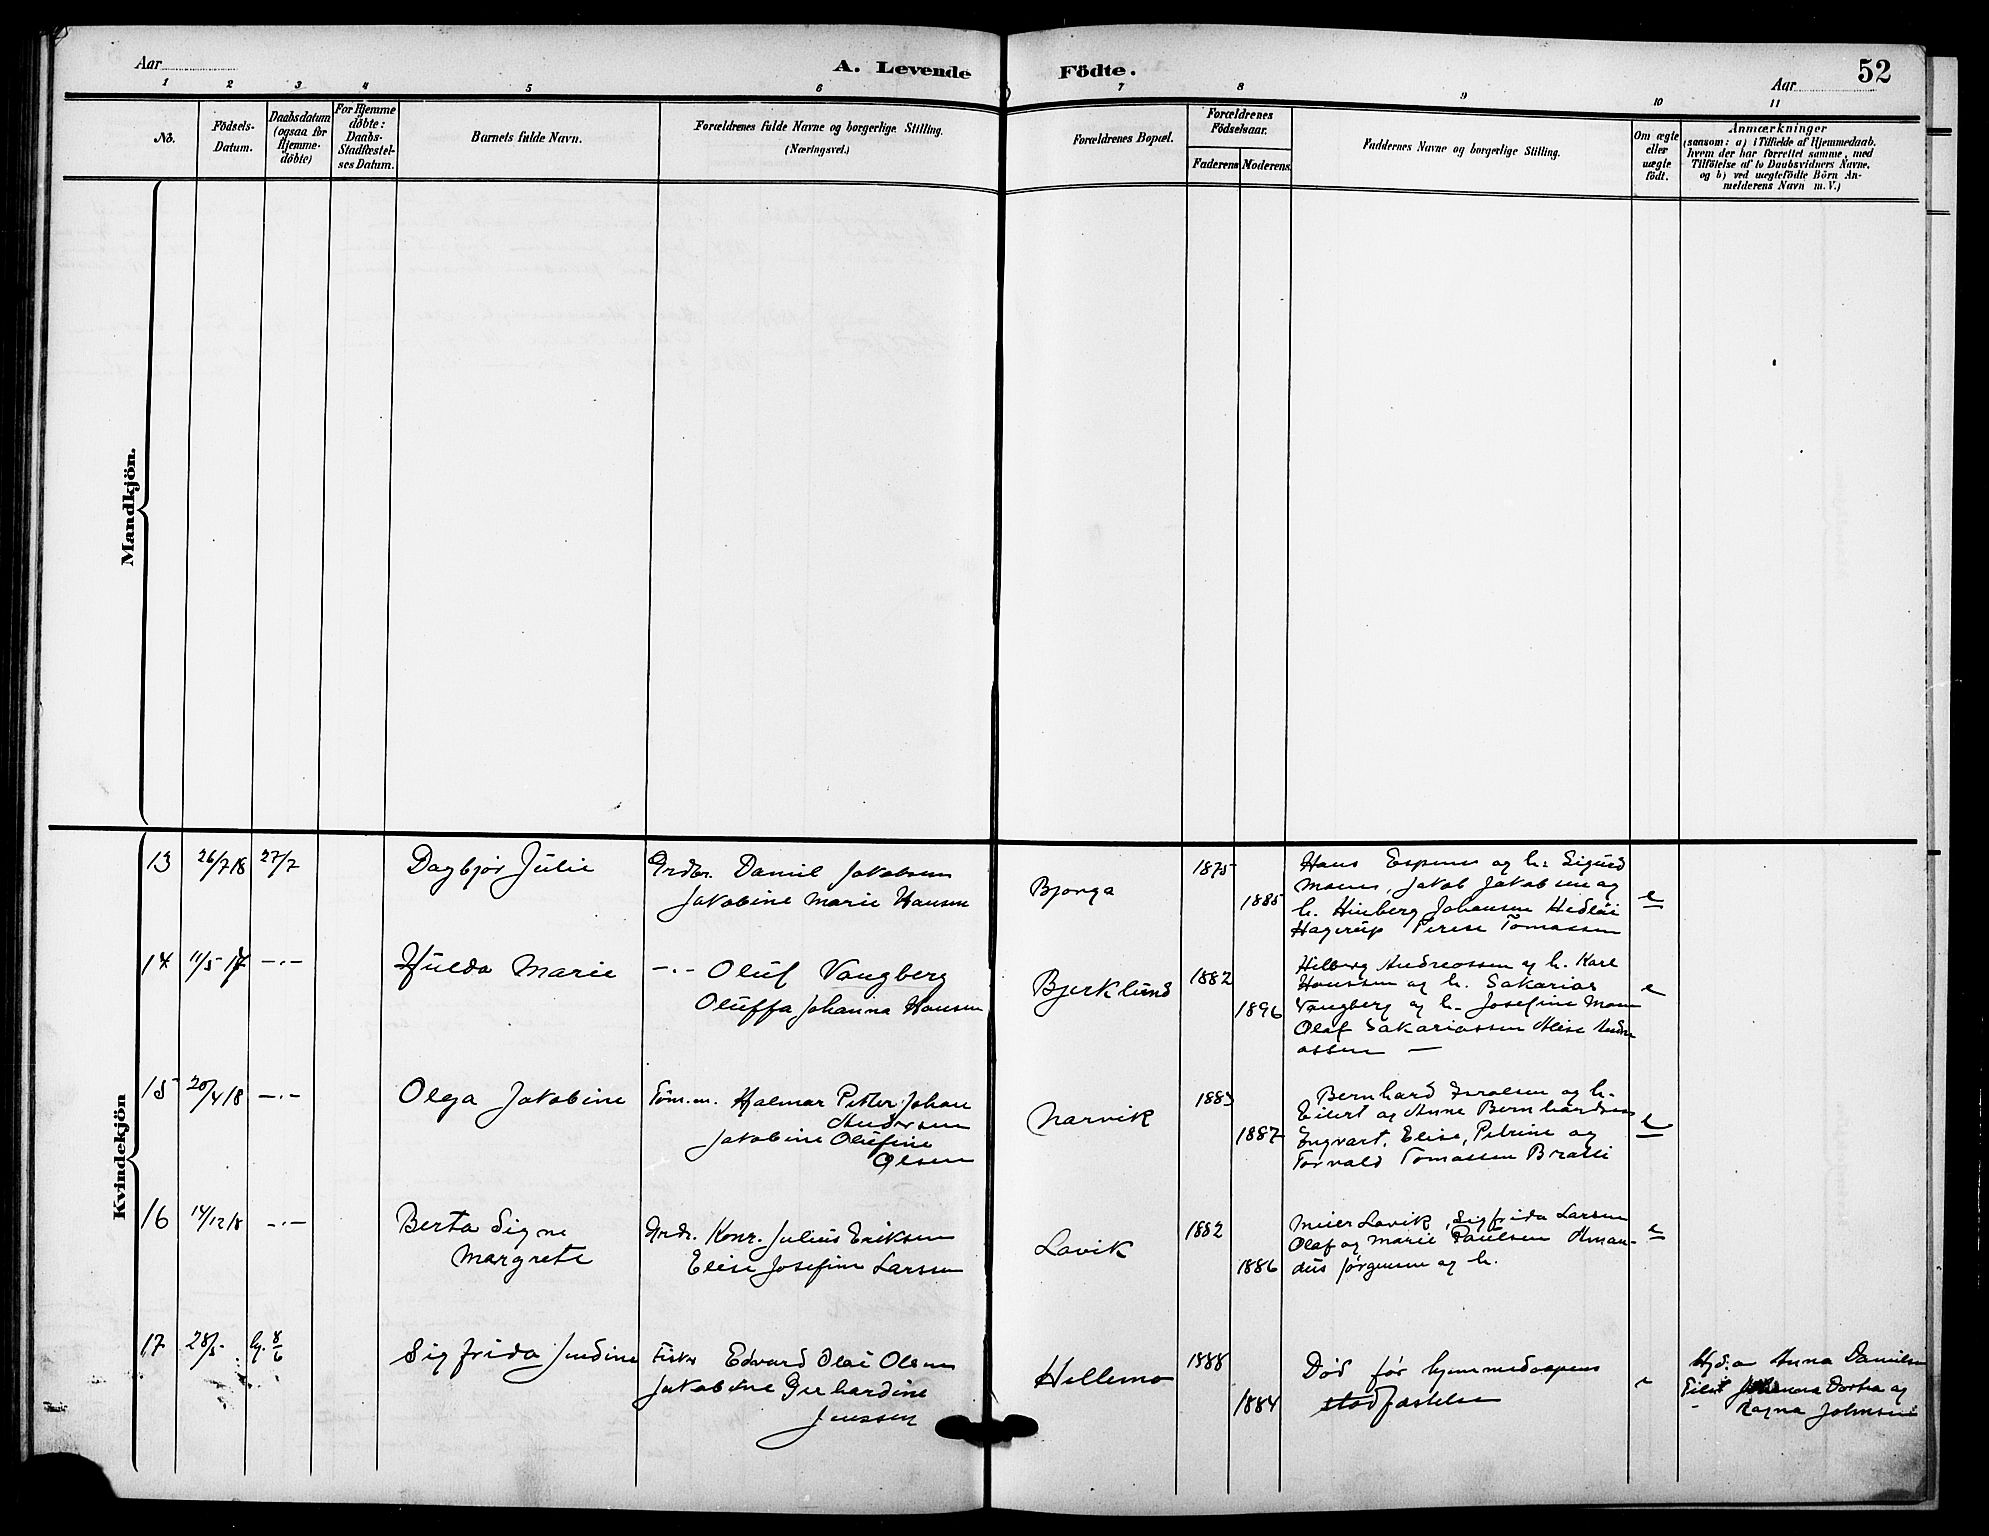 Aar
A. Levende Födte.
Aar
52
1 2 3 4 5 6 7 8 9 10 11
No.
Födsels-
Datum.
Daabsdatum
(ogsaa for
Hjemme-
döbte)
For Hjemme
døbte:
Daabs-
Stadfæstel-
ses Datum.
Barnets fulde Navn.
Forældrenes fulde Navne og borgerlige Stilling.
(Næringsvei.)
Forældrenes Bopæl.
Forældrenes
Födselsaar.
Faderens Moderens.
Faddernes Navne og borgerlige Stilling.
Om ægte
eller
uægte
födt.
Anmærkninger
(saasom: a) i Tilfælde af Hjemmedaab,
hvem der har forrettet samme, med
Tilföielse af to Daabsvidners Navne,
og b) ved uægtefödte Börn An-
melderens Navn m. V.)
Mandkjön.
Kvindekjön
13 26/7 18 27/7
Dagbjør Julie
Grdbr. Daniel Jakobsen
Jakobine Marie Hansen
Bjorga
1875
1885
Hans Espenes og h. Sigurd
Moenes, Jakob Jakobsen og
h. Hinberg Johansen
Hagerup Perese Tomassen
e
14 11/5 17 —·—
Hulda Marie
—·— Oluf Vangberg
Oluffa Johanna Hansen
Bjerklund
1882
1896
Hilberg Andreassen og h. Karl
Hanssen og h. Sakarias
Vangberg og h. Josefine
Olaf Sakariassen Alise Andre
assen —
e
15 20/4 18 —·—
Olga Jakobine
Töm.m. Halmar Petter Johan
Andersen
Jakobine Olufine
Olsen
Narvik
1883
1887
Bernhard Israelsen og h.
Eilert og Anne Bernhardsen
Engvart, Elise, Petrine og
Torvald Tomassen
e
16 14/12 18 —·—
Berta Signe
Margrete
Grdr. Konr. Julius Eriksen
Elise Josefine Larsen
Lavik
1882
1886
Meier Lavik, Sigfrida Larsen
Olaf og Marie Paulsen Aman-
dus Jørgensen og h.
e
17 28/5 hj. 8/6
Sigfrida Jendine
Fisker Edvard Olai Olsen
Jakobine Gerhardine
Jenssen
Hellemo
1888
1884
Død før hjemmedaapens
stadfæstelse
e
Hjd. av Anna Danielsen
Dortea og
Ragna Johnsen